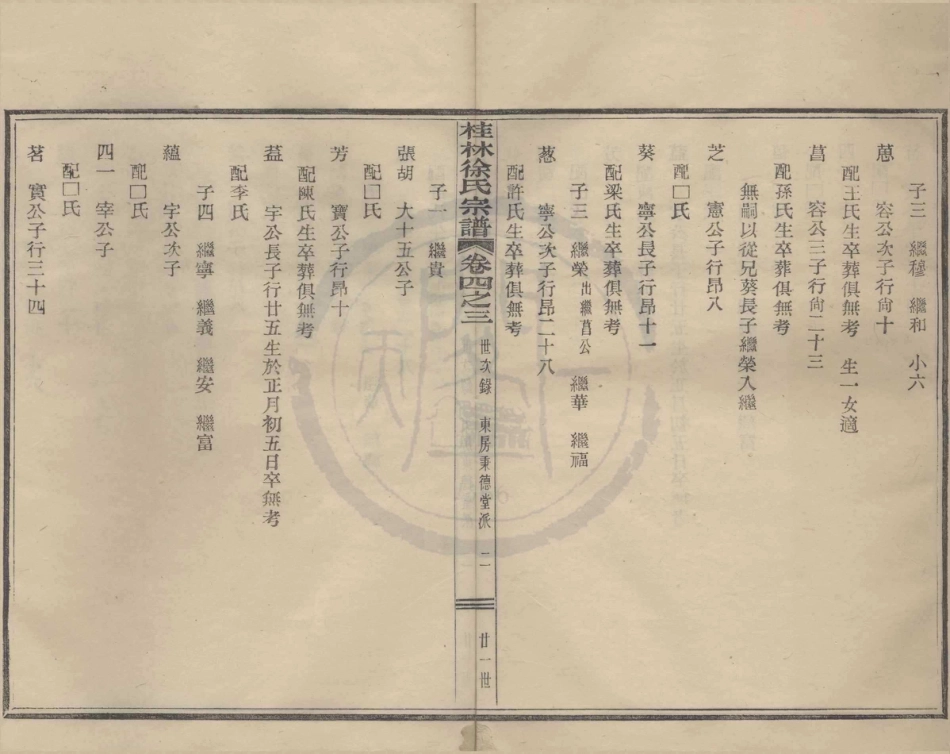 子三　繼穆　繼和　小六
蒠　容公次子行尙十
配王氏生卒葬俱無考　生一女適
菖　容公三子行尙二十三
配孫氏生卒葬俱無考
無嗣以從兄葵長子繼榮入繼
芝　憲公子行昂八
配囗氏
葵　寧公長子行昂十一
配梁氏生卒葬俱無考
子三　繼榮出繼菖公　繼華　繼福
葱　寧公次子行昂二十八
配許氏生卒葬俱無考
桂林徐氏宗譜　卷四之三　世次錄　東房秉德堂派　二　廿一世
子一　繼貴
張胡　大十五公子
配囗氏
芳　寶公子行昂十
配陳氏生卒葬俱無考
葢　宇公長子行廿五生於正月初五日卒無考
配李氏
子四　繼寧　繼義　繼安　繼富
蘊　宇公次子
配囗氏
四一　宰公子
配囗氏
茗　實公子行三十四